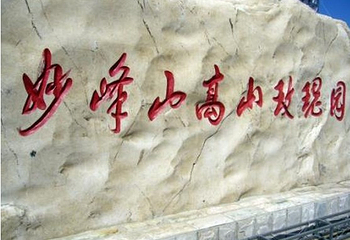 妙峰山高山玫瑰园